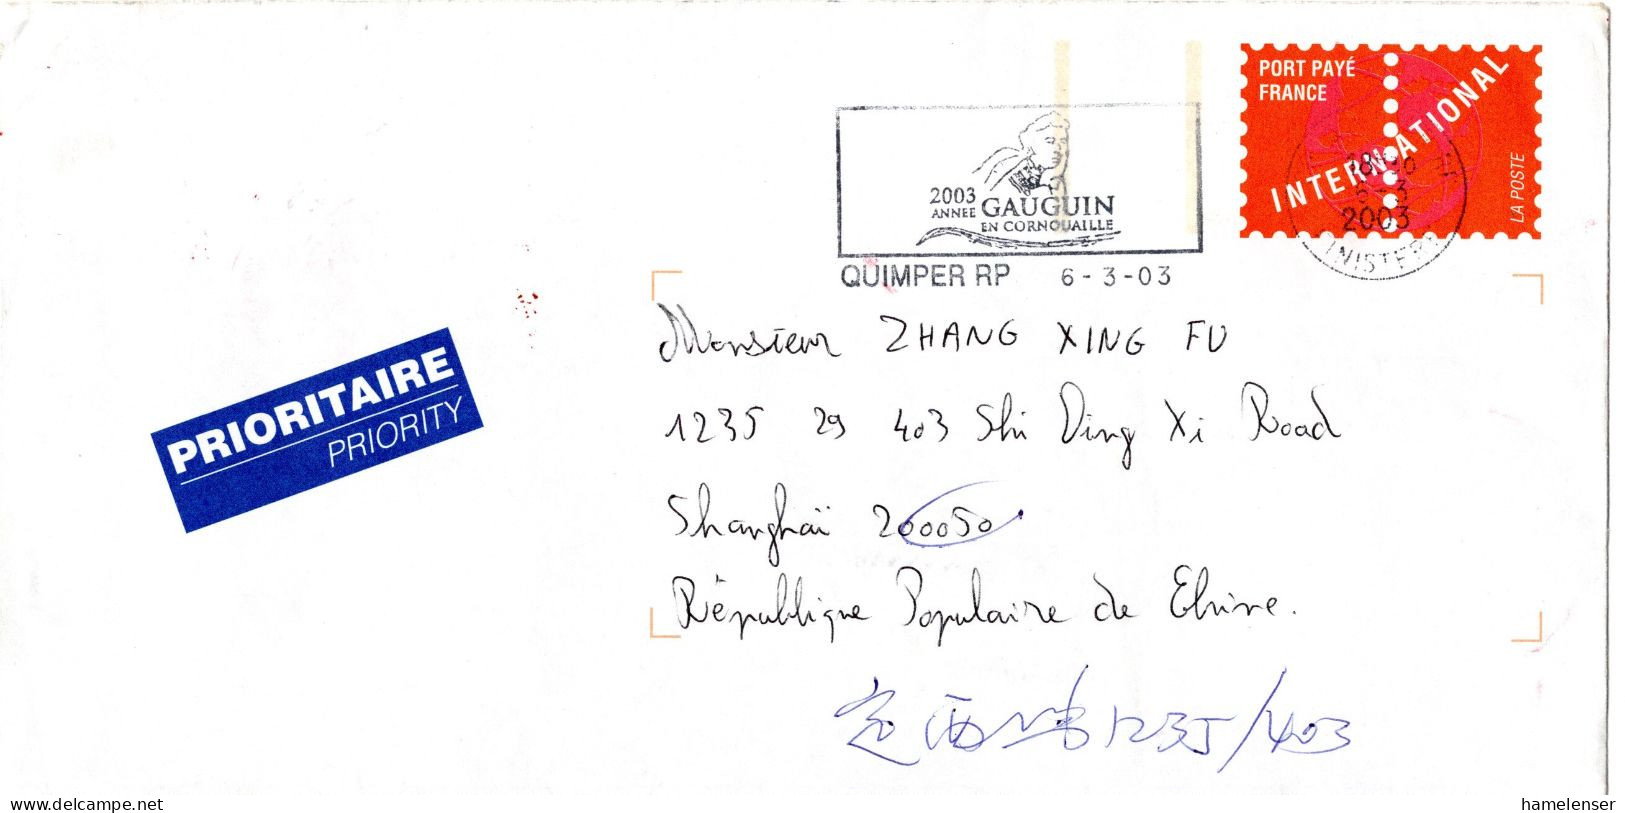 PORT PAYÉ
FRANCE
INTERNATIONAL
LA POSTE
2003
ANNEE GAUGUIN
EN CORNOUAILLE
QUIMPER RP 6-3-03
6-3
2003
FINISTERE
PRIORITAIRE
PRIORITY
Monsieur ZHANG XING FU
1235 29 403 Shi Ding Xi Road
Shanghaï 200050
République Populaire de Chine.
定西路1235/403
www.delcampe.net
hamelenser